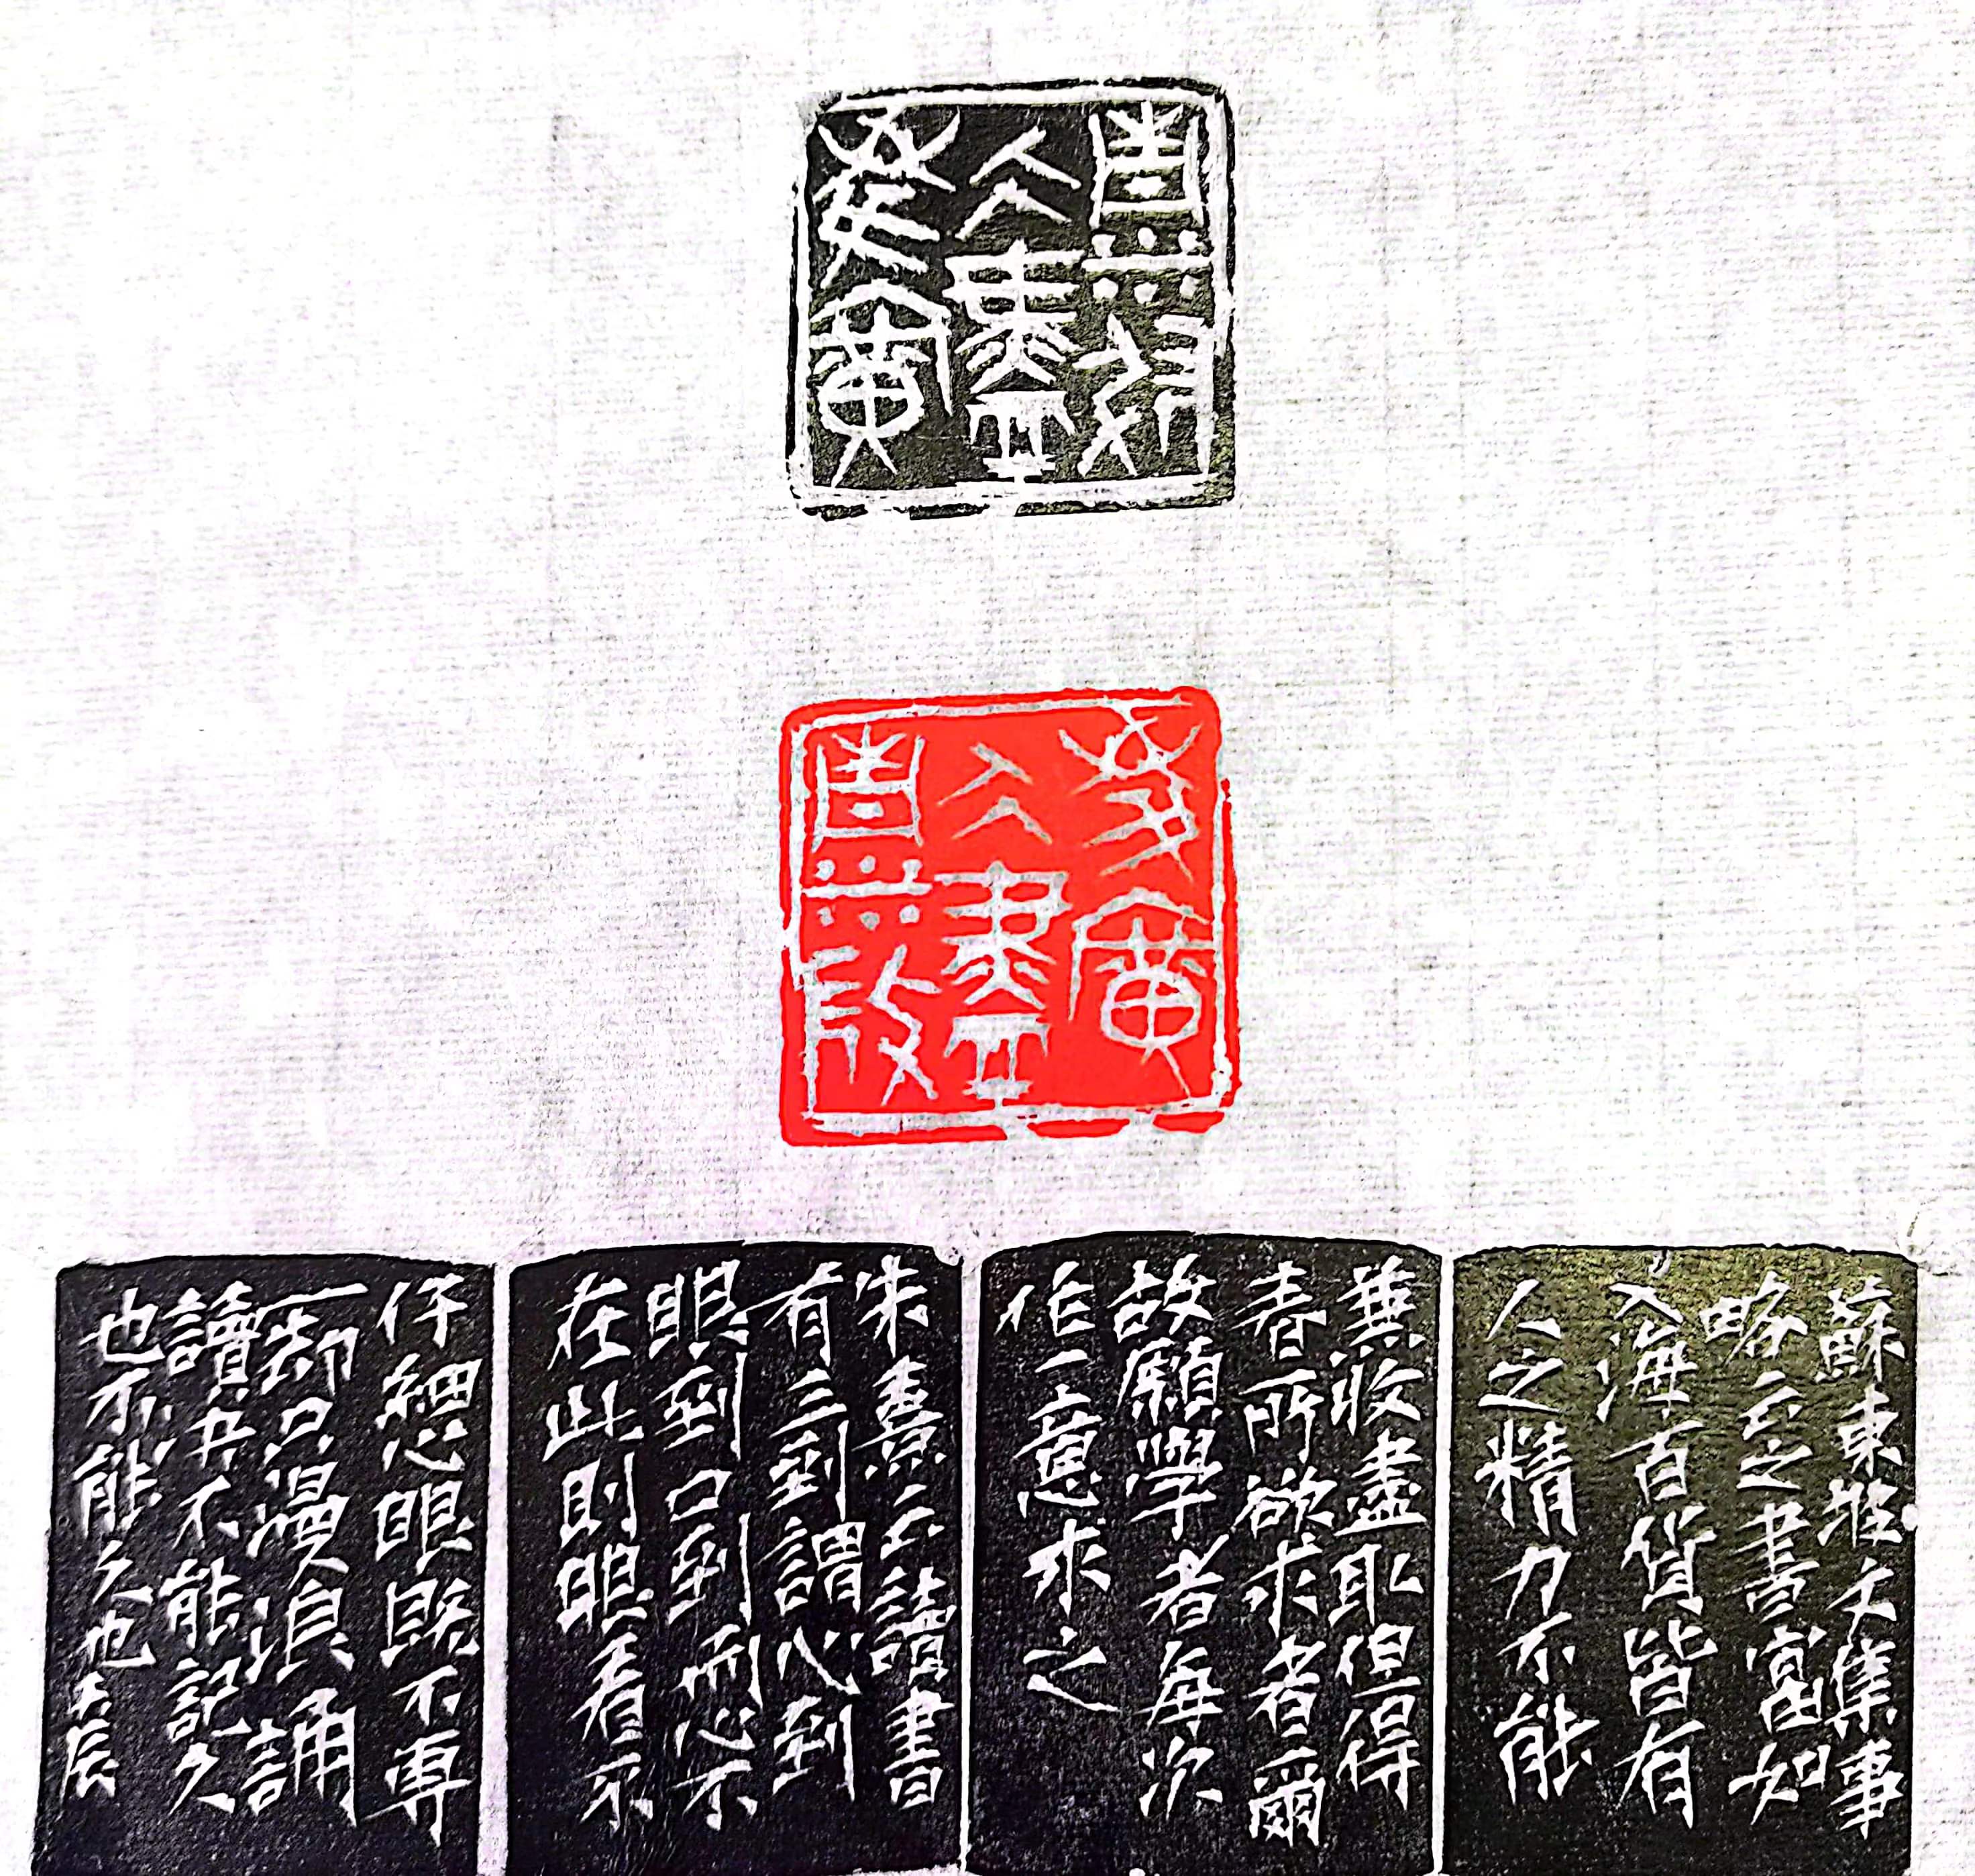 蘇東坡文集事
略云之書富如
入海百貨皆有
人之精力不能
兼收盡取但得
春所欲求者爾
故願學者每次
作一意求之
朱熹云讀書
有三到謂心到
眼到口到而心不
在此則眼看不
仔細心眼既不專
一却只漫浪誦
讀书不能記久
也不能久也壬辰